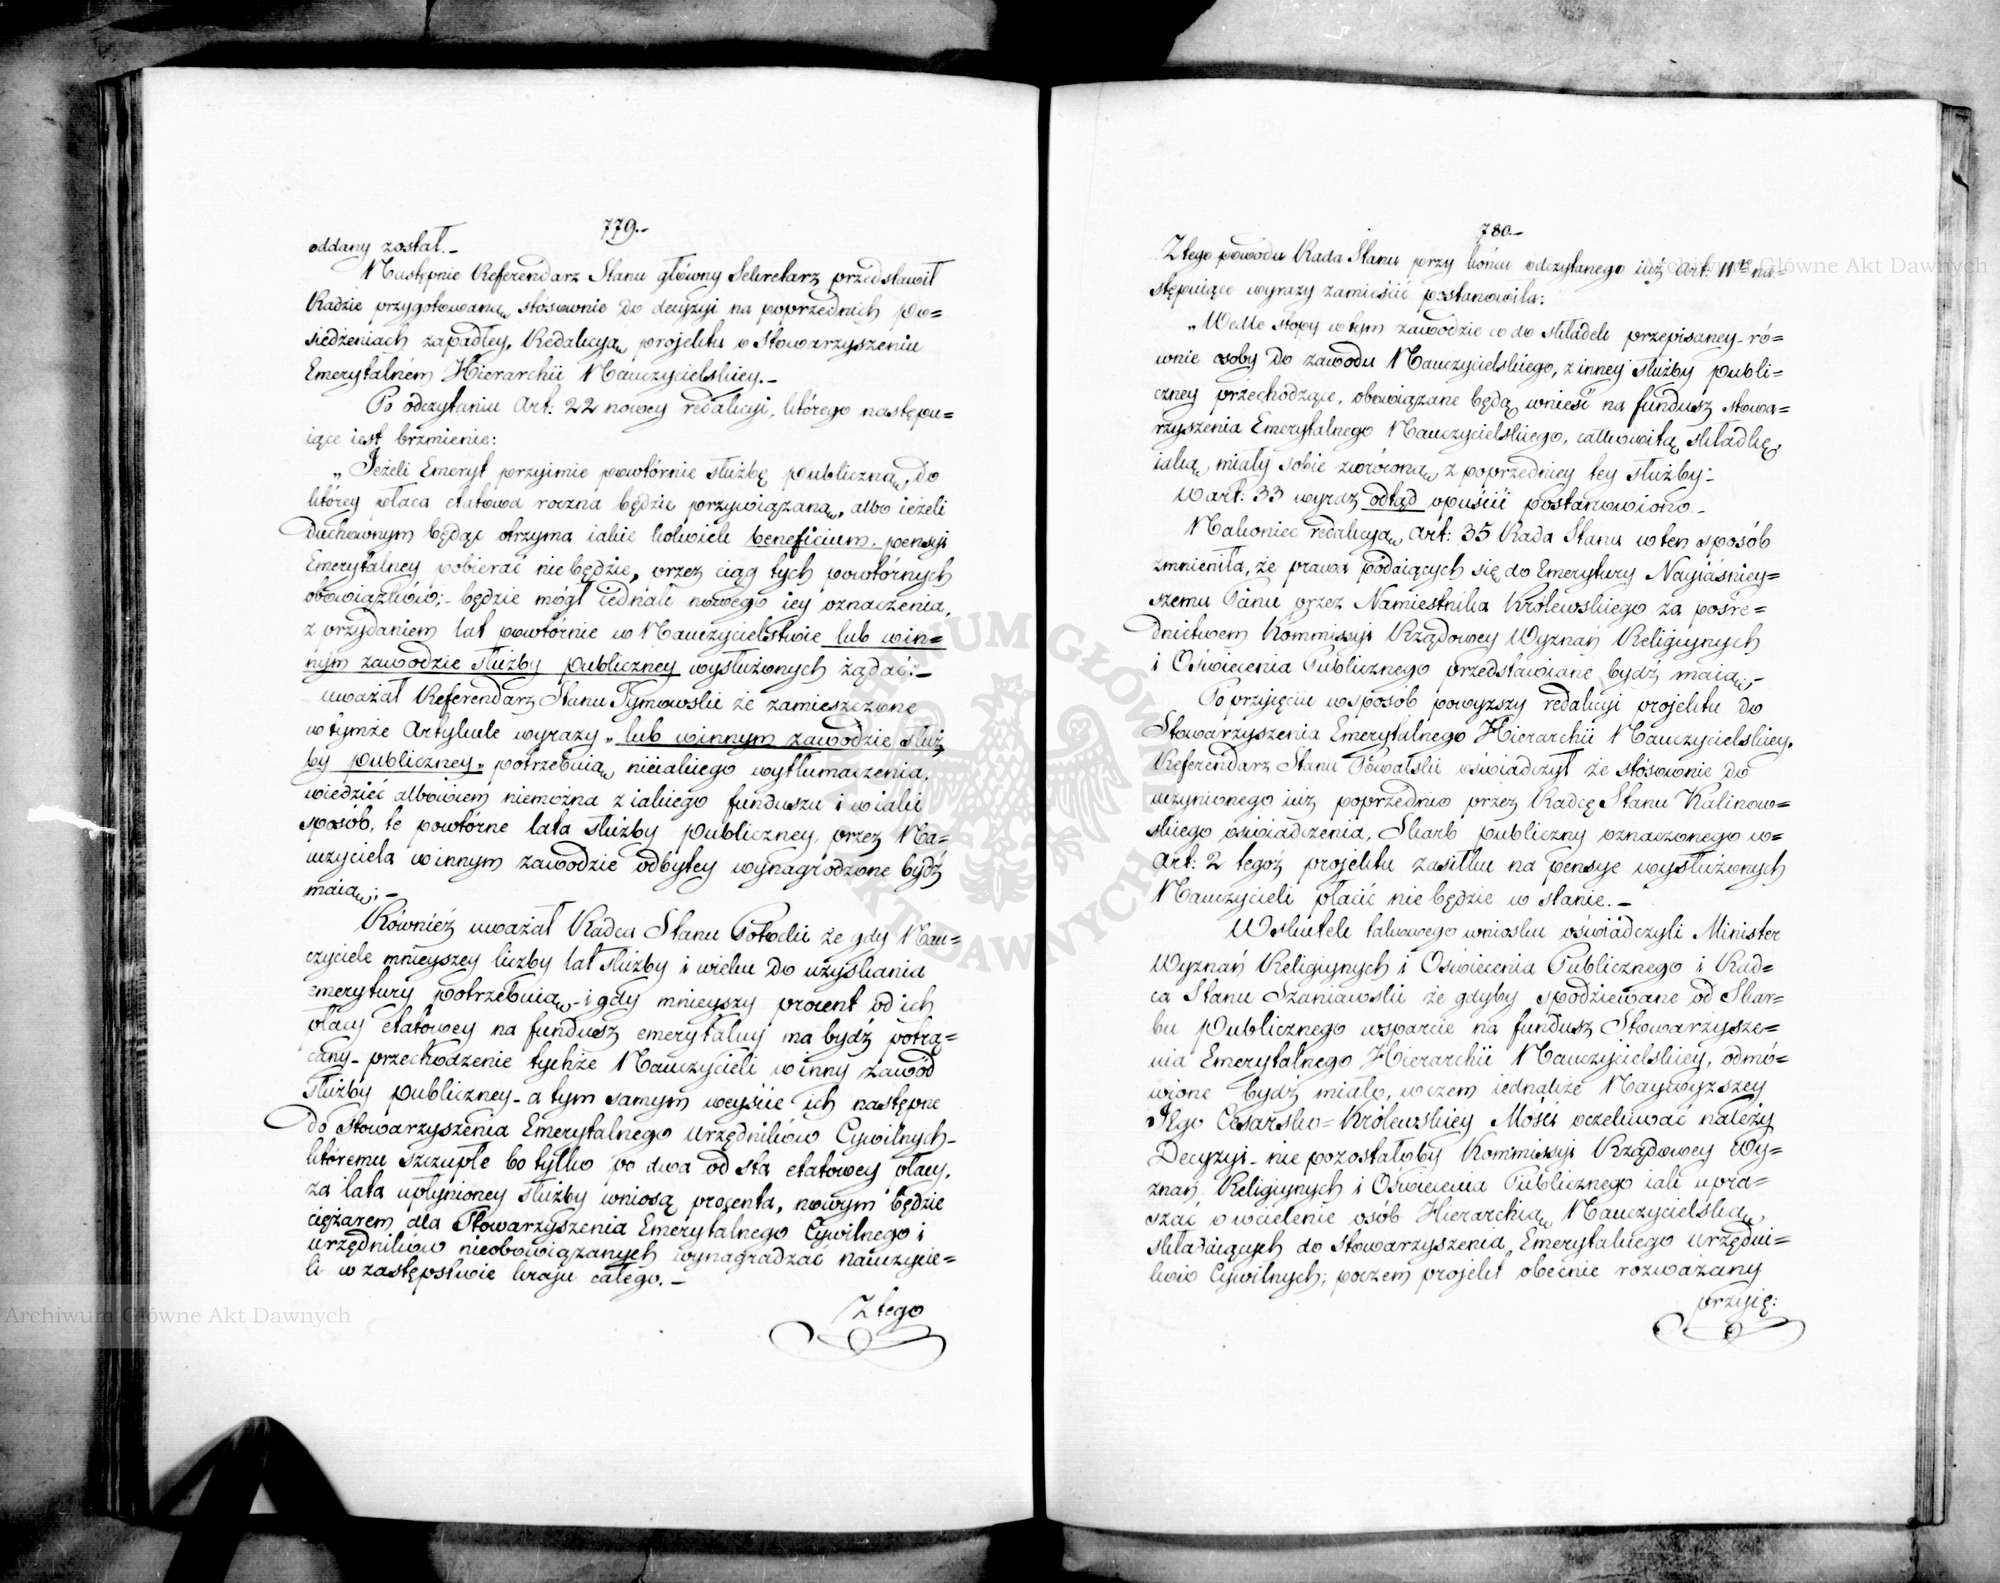 779.-
oddany został.-
Następnie Referendarz Stanu główny Sekretarz przedstawił
Radzie przygotowaną stósownie do decyzyi na poprzednich po=
siedzeniach zapadłey, Redakcyą projektu o Stowarzyszeniu
Emerytalném Hierarchii Nauczycielskiey.-
Po odczytaniu Art: 22 nowey redakcyi, którego następu=
iące iest brzmienie:
„Jeżeli Emeryt przyimie powtórnie służbę publiczną, do
którey płaca etatowa roczna będzie przywiązaną, albo ieżeli
Duchownym będąc otrzyma iakie kolwiek beneficium. pensyi
Emerytalney pobierać nie będzie, przez ciąg tych powtórnych
obowiązków;- będzie mógł iednak nowego iey oznaczenia,
z przydaniem lat powtórnie w Nauczycielstwie lub win=
nym zawodzie służby publiczney wysłużonych żądać:-
uważał Referendarz Stanu Tymowski że zamieszczone
w tymże Artykule wyrazy „lub winnym zawodzie służ
by publiczney" potrzebuią nieiakiego wytłumaczenia,
wiedzieć albowiem niemożna z iakiego funduszu i w iaki
sposób, te powtórne lata służby publiczney, przez Na=
uczyciela winnym zawodzie odbytey wynagrodzone bydź
maią;-
Również uważał Radca Stanu Potocki że gdy Nau=
czyciele mnieyszey liczby lat służby i wieku do uzyskania
emerytury potrzebuią- i gdy mnieyszy procent od ich
płacy etatowey na fundusz emerytalny ma bydź potrą=
cany- przechodzenie tychże Nauczycieli w inny zawód
służby publiczney- a tym samym weyście ich następne
do Stowarzyszenia Emerytalnego Urzędników Cywilnych-
któremu szczupłe bo tylko po dwa od sta etatowey płacy,
za lata upłynioney służby wniosą procenta, nowym będzie
ciężarem dla Stowarzyszenia Emerytalnego Cywilnego i
urzędników nieobowiązanych wynagradzać nauczycie=
li w zastępstwie kraju całego.-
Z tego
780.-
Z tego powodu Rada Stanu przy końcu odczytanego iuż Art: 11go na=
stępuiące wyrazy zamieścić postanowiła:
„Wedle stopy w tym zawodzie co do składek przepisaney- ró=
wnie osoby do zawodu Nauczycielskiego, z inney służby publi=
czney przechodzące, obowiązane będą wnieść na fundusz stowa=
rzyszenia Emerytalnego Nauczycielskiego, całkowitą składkę,
iaką miały sobie zwróconą z poprzedniey tey służby:-
W art: 33 wyraz odtąd opuścić postanowiono-
Nakoniec redakcyą Art: 35 Rada Stanu w ten sposób
zmieniła, że prawa podaiących się do Emerytury Nayiaśniey=
szemu Panu przez Namiestnika Królewskiego za pośre=
dnictwem Kommissyi Rządowey Wyznań Religiynych
i Oświecenia Publicznego przedstawiane bydź maią;-
Po przyięciu w sposób powyższy redakcyi projektu do
Stowarzyszenia Emerytalnego Hierarchii Nauczycielskiey,
Referendarz Stanu Powalski oświadczył że stósownie do
uczynionego iuż poprzednio przez Radcę Stanu Kalinow=
skiego oświadczenia, Skarb publiczny oznaczonego w=
Art: 2 tegóż projektu zasiłku na pensye wysłużonych
Nauczycieli płacić nie będzie w stanie.-
W skutek takowego wniosku oświadczyli Minister
Wyznań Religiynych i Oświecenia Publicznego i Rad=
ca Stanu Szaniawski że gdyby spodziewane od Skar=
bu Publicznego wsparcie na fundusz Stowarzysze=
nia Emerytalnego Hierarchii Nauczycielskiey, odmó=
wione bydź miało, w czem iednakże Naywyższey
Jego Cesarsko=Królewskiey Mości oczekiwać należy
Decyzyi- nie pozostałoby Kommissyi Rządowey Wy=
znań Religiynych i Oświecenia Publicznego iak upra=
szać o wcielenie osób Hierarchią Nauczycielską
składaiących do Stowarzyszenia Emerytalnego Urzędni=
ków Cywilnych; poczem projekt obecnie rozważany
przyię:
Archiwum Główne Akt Dawnych
Archiwum Główne Akt Dawnych
ARCHIWUM GŁÓWNE AKT DAWNYCH